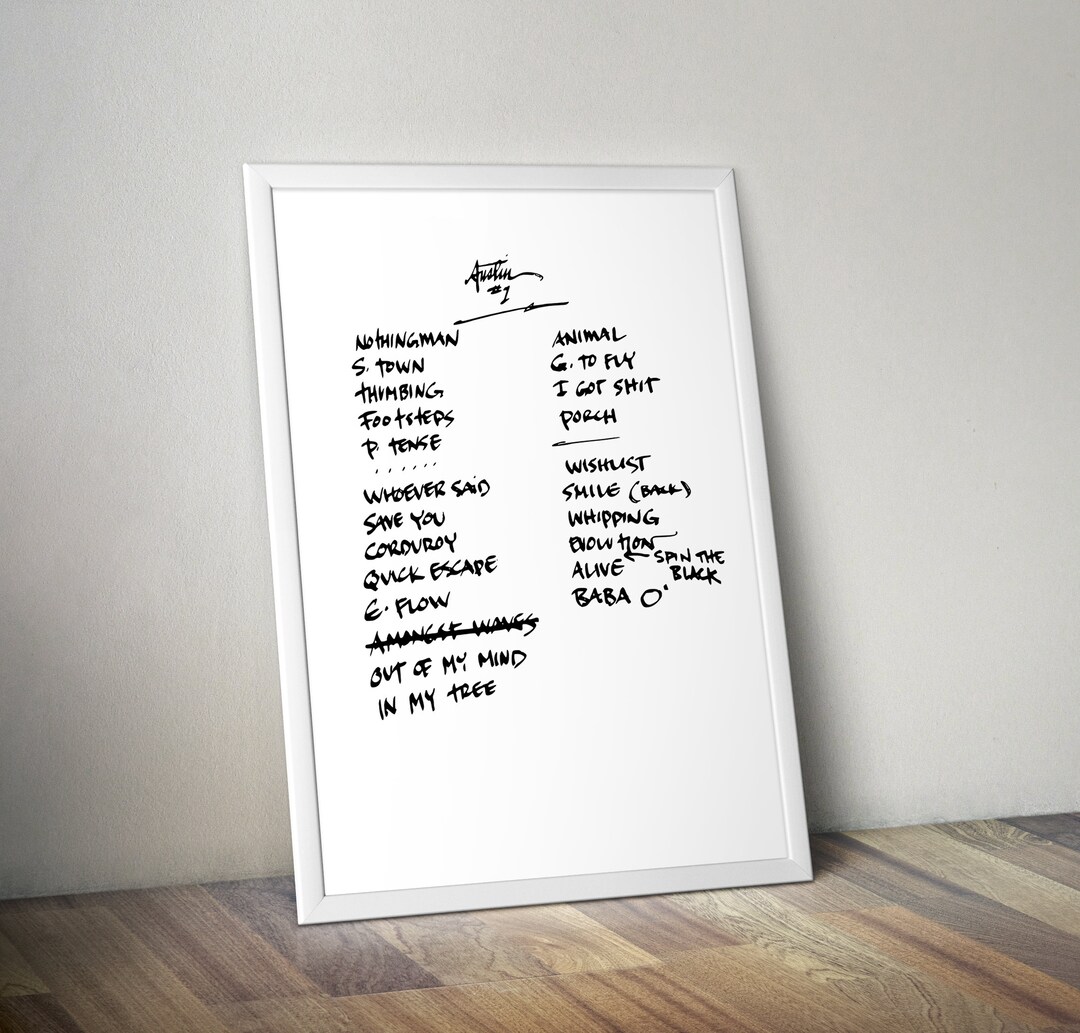 Austin
#1
NOTHINGMAN
S. TOWN
THUMBING
FOOTSTEPS
P. TENSE
WHOEVER SAID
SAVE YOU
CORDUROY
QUICK ESCAPE
E. FLOW
AMONGST WAVES
OUT OF MY MIND
IN MY TREE
ANIMAL
G. TO FLY
I GOT SHIT
PORCH
WISHLIST
SMILE (BACK)
WHIPPING
EVOLUTION
SPIN THE
BLACK
ALIVE
BABA O'